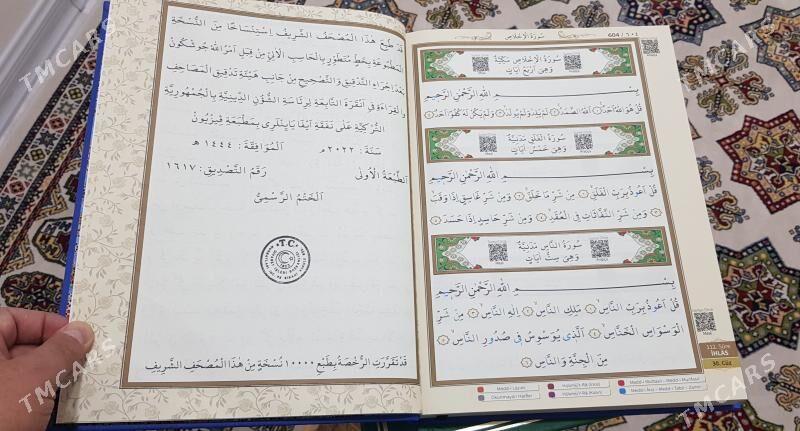 قَدْ طُبِعَ هٰذَا الْمُصْحَفُ الشَّرِيفُ اِسْتِنْسَاخًا مِنَ النُّسْخَةِ
الْمَطْبُوعَةِ بِخَطٍّ مُتَطَوِّرٍ بِالْحَاسِبِ الْاٰلِيِّ مِنْ قِبَلِ اَمْرُ اللّٰه جُوشْكُونْ
بَعْدَ اِجْرَاءِ التَّدْقِيقِ وَالتَّصْحِيحِ مِنْ جَانِبِ هَيْئَةِ تَدْقِيقِ الْمَصَاحِفِ
وَالْقِرَاءَةِ فِي اَنْقَرَةَ التَّابِعَةِ لِرِئَاسَةِ الشُّؤُنِ الدِّينِيَّةِ بِالْجُمْهُورِيَّةِ
التُّرْكِيَّةِ عَلٰى نَفَقَةِ اٰيْفَا يَايِنْلَرِى بِمَطْبَعَةِ
سَنَةَ : ٢٠٢٢ م الْمُوَافِقَةَ : ١٤٤٤ هـ
اَلطَّبْعَةُ الْاُولٰى رَقْمُ التَّصْدِيقِ : ١٦١٧
اَلْخَتْمُ الرَّسْمِىُّ
T.C.
قَدْ تَقَرَّرَتِ الرُّخْصَةُ بِطَبْعِ ١٠٠٠٠ نُسْخَةٍ مِنْ هٰذَا الْمُصْحَفِ الشَّرِيفِ
سُورَةُ الْاِخْلَاصِ 604 / ٦٠٤
سُورَةُ الْاِخْلَاصِ مَكِّيَّةٌ
وَهِيَ اَرْبَعُ اٰيَاتٍ
بِسْمِ اللّٰهِ الرَّحْمٰنِ الرَّحِيمِ
قُلْ هُوَ اللّٰهُ اَحَدٌ ١ اَللّٰهُ الصَّمَدُ ٢ لَمْ يَلِدْ وَلَمْ يُولَدْ ٣ وَلَمْ يَكُنْ لَهُ كُفُوًا اَحَدٌ ٤
سُورَةُ الْفَلَقِ مَدَنِيَّةٌ
وَهِيَ خَمْسُ اٰيَاتٍ
بِسْمِ اللّٰهِ الرَّحْمٰنِ الرَّحِيمِ
قُلْ اَعُوذُ بِرَبِّ الْفَلَقِ ١ مِنْ شَرِّ مَا خَلَقَ ٢ وَمِنْ شَرِّ غَاسِقٍ اِذَا وَقَبَ
٣ وَمِنْ شَرِّ النَّفَّاثَاتِ فِي الْعُقَدِ ٤ وَمِنْ شَرِّ حَاسِدٍ اِذَا حَسَدَ ٥
سُورَةُ النَّاسِ مَدَنِيَّةٌ
وَهِيَ سِتُّ اٰيَاتٍ
بِسْمِ اللّٰهِ الرَّحْمٰنِ الرَّحِيمِ
قُلْ اَعُوذُ بِرَبِّ النَّاسِ ١ مَلِكِ النَّاسِ ٢ اِلٰهِ النَّاسِ ٣ مِنْ شَرِّ
الْوَسْوَاسِ الْخَنَّاسِ ٤ اَلَّذِى يُوَسْوِسُ فِى صُدُورِ النَّاسِ ٥
مِنَ الْجِنَّةِ وَالنَّاسِ ٦
Meal
112. Sûre
İHLÂS
30. Cüz
Medd-i Lâzım
Okunmayan Harfler
TMCARS
TMCARS
TMCARS
TMCARS
TMCARS
TMCARS